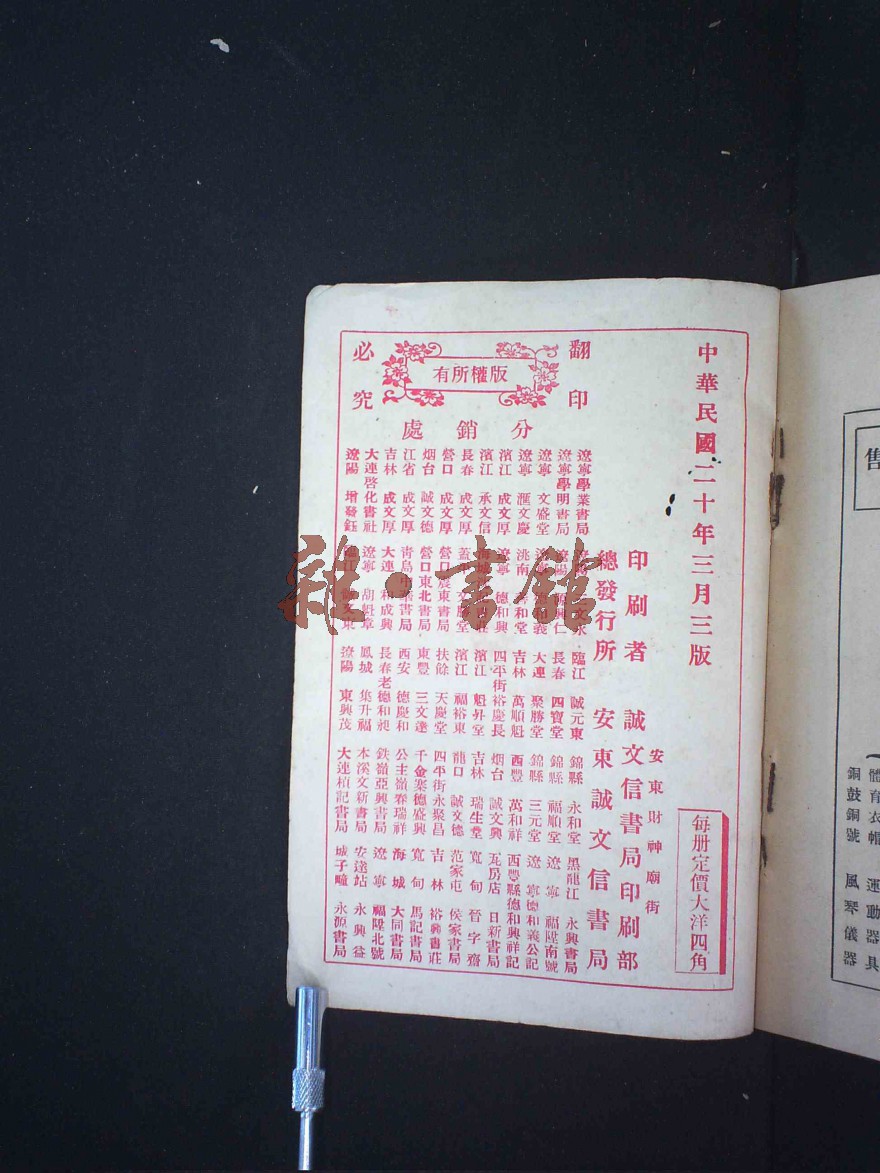 中華民國二十年三月三版
每册定價大洋四角
安東財神廟街
印刷者 誠文信書局印刷部
總發行所 安東誠文信書局
翻印必究
版權所有
分銷處
遼寧學業書局
臨江 誠元東
錦縣 永和堂
黑龍江 永興書局
遼寧學明書局
長春 四寶堂
錦縣 福順堂
遼寧 福陞南號
遼寧 文盛堂
大連 聚勝堂
錦縣 三元堂
遼寧德和義公記
遼寧 滙文慶
洮南 善和堂
吉林 萬順魁
西豐 萬和祥
西豐縣德和興祥記
濱江 成文厚
遼寧 德和興
四平街裕慶長
烟台 誠文興
瓦房店 日新書局
濱江 承文信
濱江 魁昇堂
吉林 瑞生堂
寬甸 晉字齋
長春 成文厚
濱江 福裕東
龍口 誠文德
范家屯 侯家書局
營口 成文厚
營口震東書局
扶餘 天慶堂
四平街永聚昌
吉林 裕興書莊
烟台 誠文德
營口東北書局
東豐 三文達
千金寨德盛興
寬甸 馬記書局
江省 成文厚
青島中華書局
西安 德慶和
公主嶺春瑞祥
海城 大同書局
吉林 成文厚
大連 和成興
長春老德和昶
鉄嶺亞興書局
遼寧 福陞北號
大連啓化書社
遼寧 胡魁章
鳳城 集升福
本溪文新書局
安達站 永興益
遼陽 增發鈺
遼陽 東興茂
大連楨記書局
城子疃 永源書局
雜·書館
售
體育衣帽 運動器具
銅鼓銅號 風琴儀器